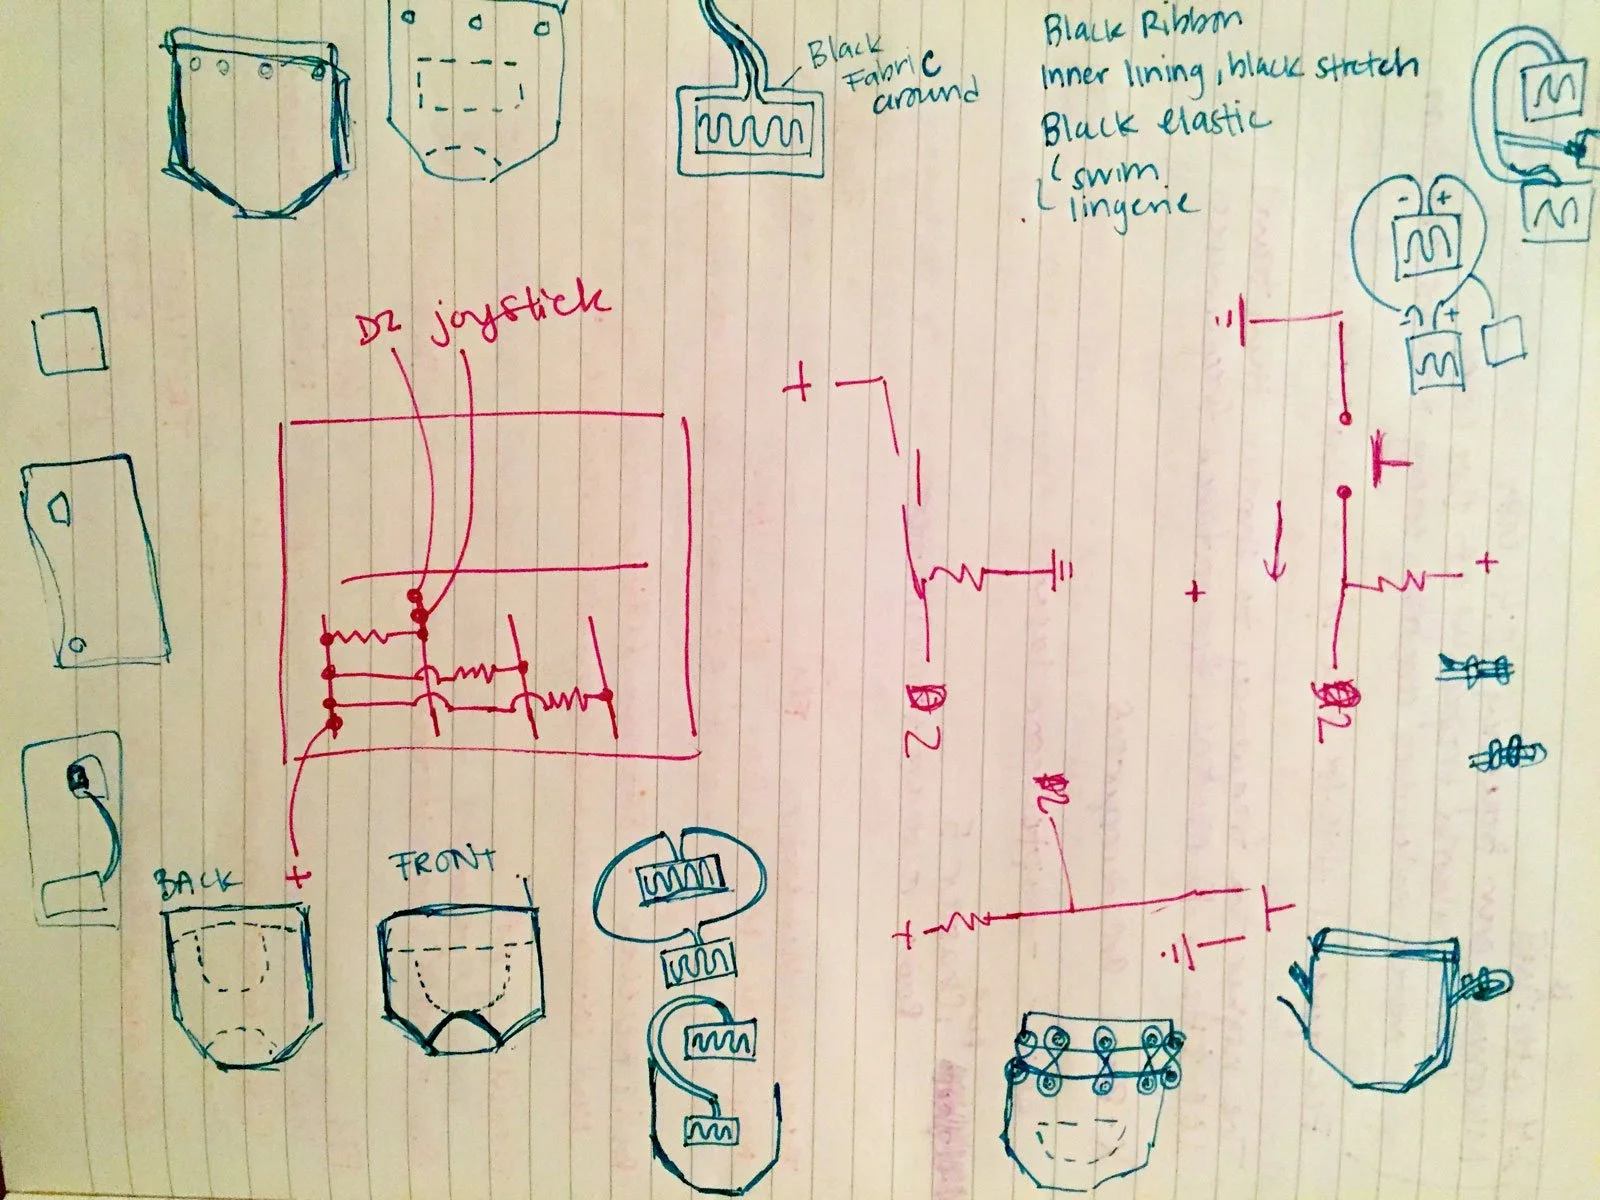 Black
Fabric
around
Black Ribbon
Inner lining, black stretch
Black elastic
swim
lingerie
- +
- +
D2 joystick
+
+
+
+
2
2
2
BACK
+
FRONT
+